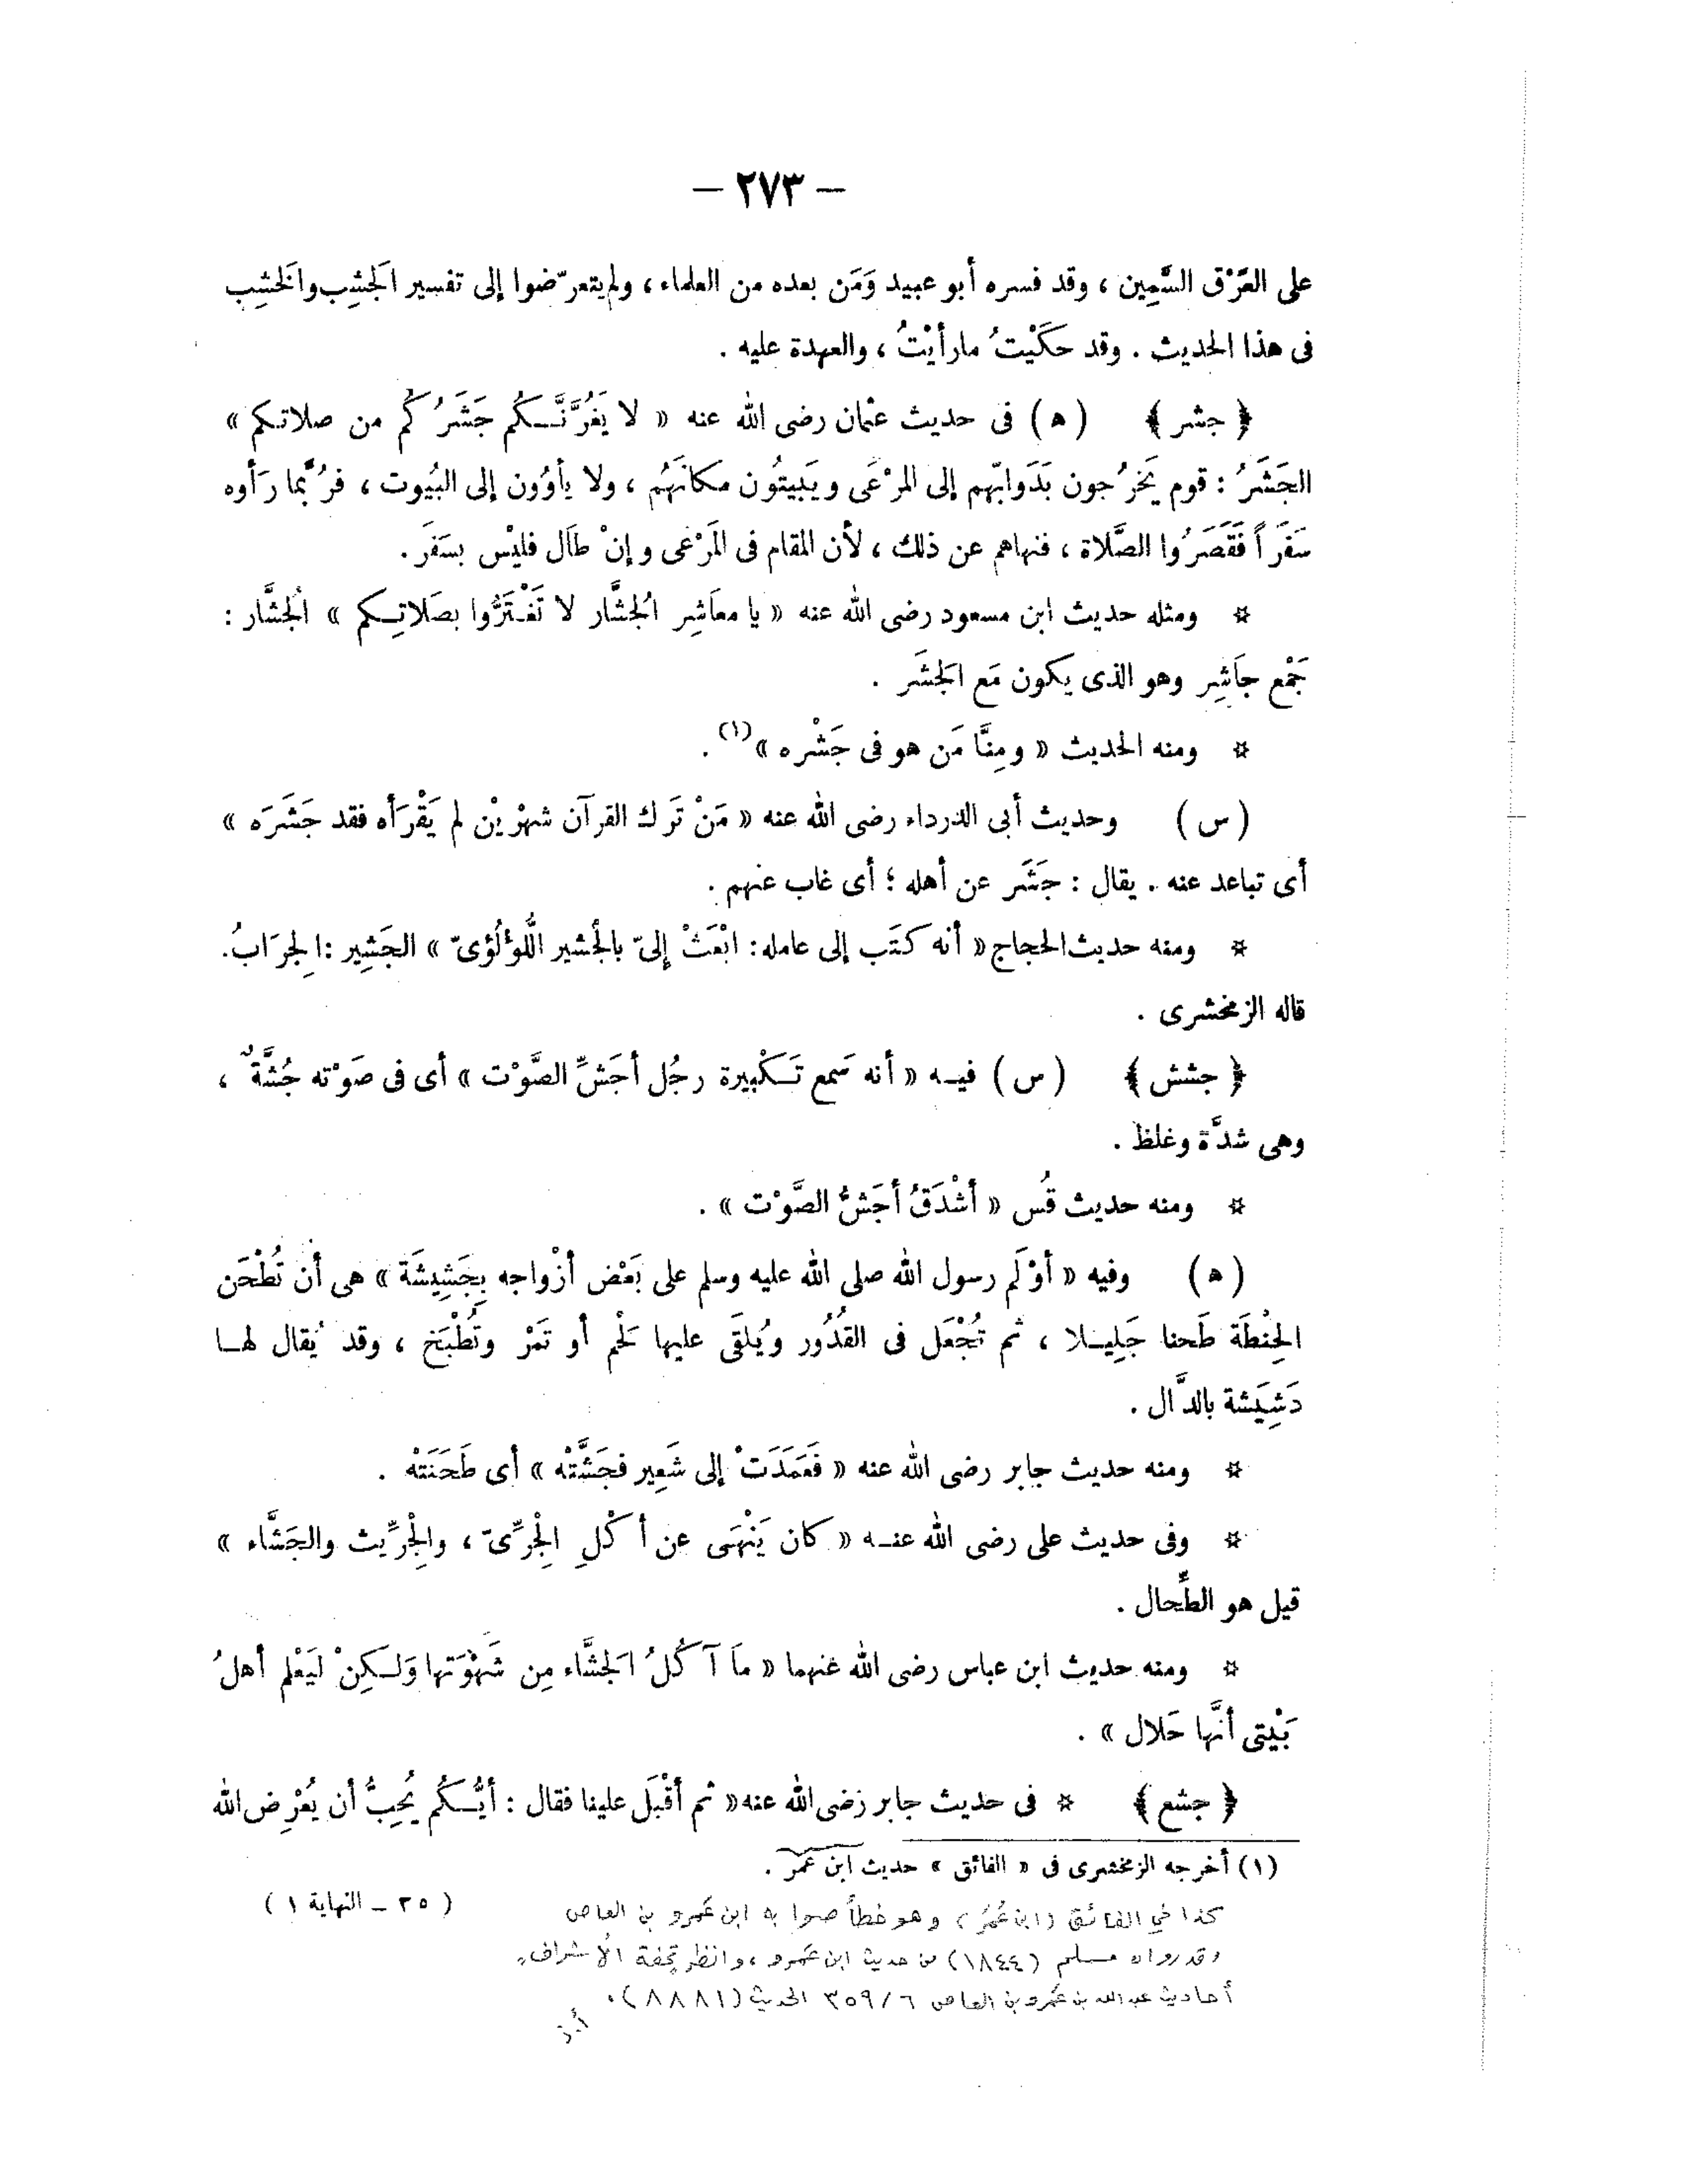 — ٢٧٣ —
على العَرْق السَّمِين ، وقد فسره أبو عبيد وَمَن بعده من العلماء ، ولم يتعرّضوا إلى تفسير الجَشِب والخَشِب
فى هذا الحديث . وقد حكَيْتُ ما رأيْتُ ، والعهدة عليه .
﴿ جشر ﴾ ( ه ) فى حديث عثمان رضى الله عنه « لا يَغُرَّنَّـكُم جَشَرُكُم من صلاتكم »
الجَشَرُ : قوم يَخرُجون بَدَوابّهم إلى المرْعَى ويَبيتُون مكانَهُم ، ولا يأوُون إلى البُيوت ، فرُبَّما رَأوه
سَفَراً فَقَصَرُوا الصَّلاة ، فنهاهم عن ذلك ، لأن المقام فى المَرْعى وإنْ طاَل فليْس بسَفَر .
* ومثله حديث ابن مسعود رضى الله عنه « يا معاَشِر الجُشَّار لا تَغْـتَرُّوا بصَلاتِـكم » الجُشَّار :
جَمْع جاَشِر وهو الذى يكون مَع الجَشَر .
* ومنه الحديث « ومِنَّا مَن هو فى جَشْره »(١) .
( س ) وحديث أبى الدرداء رضى الله عنه « مَنْ تَرك القرآن شهْريْن لم يَقْرَأه فقد جَشَرَه »
أى تباعد عنه . يقال : جَشَر عن أهله ؛ أى غاب عنهم .
* ومنه حديث الحجاج « أنه كتَب إلى عامله : ابْعَثْ إلىّ بالجْشير اللُّؤلُؤىّ » الجَشِير : الجِرَابُ .
قاله الزمخشرى .
﴿ جشش ﴾ ( س ) فيـه « أنه سَمع تَـكْبيرة رجُل أجَشِّ الصَّوْت » أى فى صَوْته جُشَّةٌ ،
وهى شدَّة وغلظ .
* ومنه حديث قُس « أشْدَقُ أجَشُّ الصَّوْت » .
( ه ) وفيه « أوْلَم رسول الله صلى الله عليه وسلم على بَعْض أزْواجه بِجَشِيشَة » هى أن تُطْحَن
الحِنْطَة طَحنا جَلِيـلا ، ثم تُجْعَل فى القُدُور ويُلقَى عليها لَحْم أو تَمْر وتُطْبَخ ، وقد يُقال لهـا
دَشِيَشة بالدَّال .
* ومنه حديث جابر رضى الله عنه « فَعَمَدَتْ إلى شَعِير فجَشَّتْه » أى طَحَنَتْه .
* وفى حديث على رضى الله عنـه « كان يَنْهَى عن أكْلِ الجْرِّىّ ، والجْرِّيث والجَشَّاء »
قيل هو الطِّحال .
* ومنه حديث ابن عباس رضى الله عنهما « ماَ آكُلُ الجَشَّاء مِن شَهْوَتها وَلـكِنْ لَيَعْلم أهلُ
بَيْتى أنَّها حَلال » .
﴿ جشع ﴾ * فى حديث جابر رضى الله عنه « ثم أقْبَل علينا فقال : أيُّـكُم يُحِبُّ أن يُعْرِض الله
(١) أخرجه الزمخشرى فى « الفائق » حديث ابن عمَر .
( ٣٥ – النهاية ١ )
كذا في الفائق (ابن عُمَر) وهو خطأ صوابه ابن عَمرو بن العاص
وقد رواه مسلم (١٨٤٤) من حديث ابن عَمرو ، وانظر تحفة الأشراف
أحاديث عبد الله بن عَمرو بن العاص ٦/٣٥٩ الحديث (٨٨٨١) .